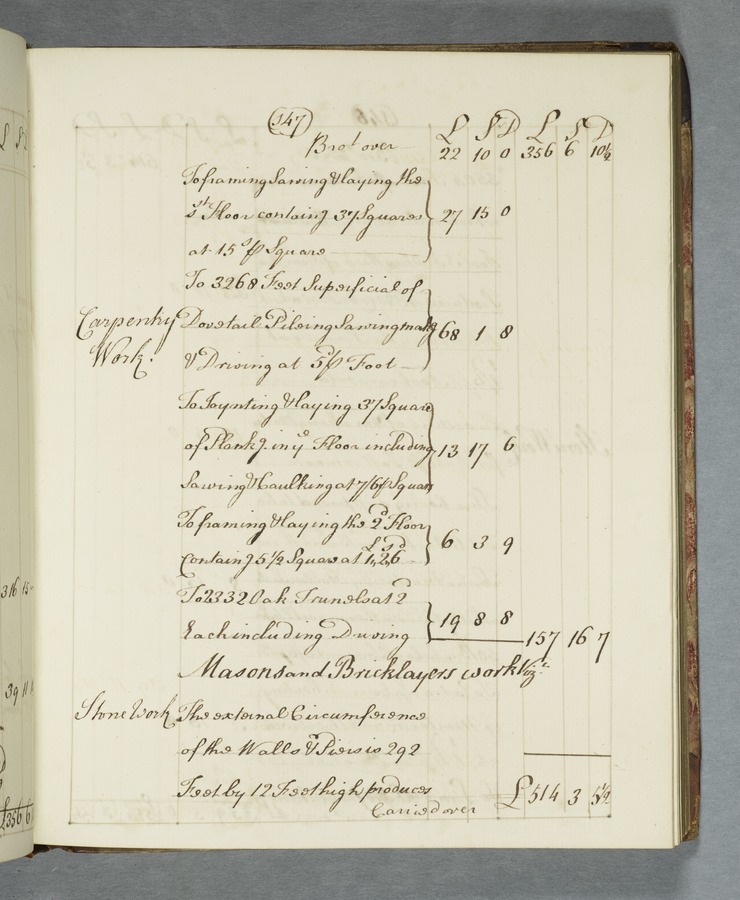 147
L S D L S D
Brot over 22 10 0 356 6 10½
To framing Sawing & laying the
1st Floor containg 37 Squares 27 15 0
at 15s ⅌ Square
To 3268 Feet Superficial of
Carpentry Dovetail Pileing Sawing makg 68 1 8
Work. & Driving at 5d ⅌ Foot
To Joynting & laying 37 Square
of Plankg in ye Floor including 13 17 6
Sawing & Caulking at 7/6 ⅌ Square
To framing & laying the 2d Floor
L s d
containg 5½ Square at 1,, 2,, 6 6 3 9
To 2332 Oak Trunels at 2d
Each including Driving 19 8 8 157 16 7
Masons and Bricklayers work Vizt.
Stone Work The external Circumference
of the Walls & Piers is 292
Feet by 12 Feet high produces £ 514 3 5½
Carried over
316 15
39 11
£356 6